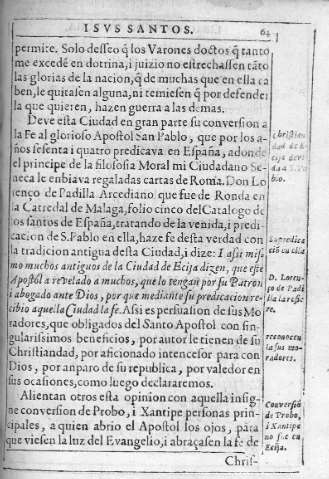 ISVS SANTOS. 64
permite. Solo desseo q̃ los Varones doctos q̃ tanto
me excedẽ en dotrina, i juizio no estrechassen tãto
las glorias de la nacion, q̃ de muchas que en ella ca
ben, le quitasen alguna, ni temiesen q̃ por defender
la que quieren, hazen guerra a las demas.
Deve esta Ciudad en gran parte su conversion a
la Fe al glorioso Apostol San Pablo, que por los a-
ños sesenta i quatro predicava en España, a donde
el principe de la filosofia Moral mi Ciudadano Se-
neca le enbiava regaladas cartas de Roma. Don Lo
renço de Padilla Arcediano que fue de Ronda en
la Catredal de Malaga, folio cinco del Catalogo de
los santos de España, tratando de la venida, i predi-
cacion de S. Pablo en ella, haze fe desta verdad con
la tradicion antigua desta Ciudad, i dize: I assi mis-
mo muchos antiguos de la Ciudad de Ecija dizen, que este
Apostol a revelado a muchos, que lo tengan por su Patron
i abogado ante Dios, por que mediante su predicacion re-
cibio aquella Ciudad la fe. Assi es persuasion de sus Mo
radores, que obligados del Santo Apostol con sin-
gularissimos beneficios, por autor le tienen de su
Christiandad, por aficionado intencesor para con
Dios, por anparo de su republica, por valedor en
sus ocasiones, como luego declararemos.
Alientan otros esta opinion con aquella insig-
ne conversion de Probo, i Xantipe personas prin-
cipales, a quien abrio el Apostol los ojos, para
que viesen la luz del Evangelio, i abraçasen la fe de
Chris-
Christian
dad de E-
cija devi-
da a S. Pa
blo.
Su predica
ciõ en ella
D. Loren-
ço de Padi
lla la refie
re.
reconocen
la sus mo-
radores.
Conversiõ
de Probo,
i Xantipe
no fue en
Ecija.